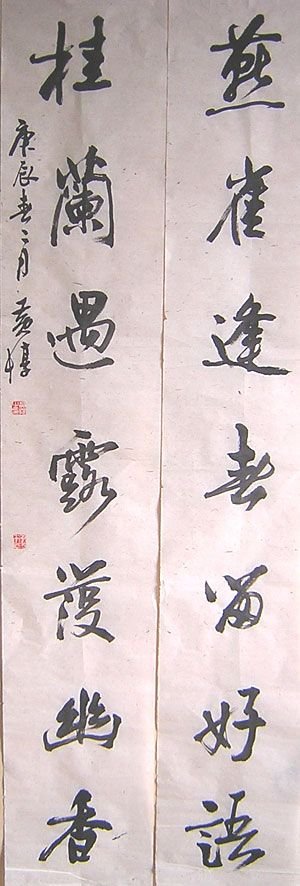 燕雀逢春留好語
桂蘭遇露發幽香
庚辰春二月黃惇